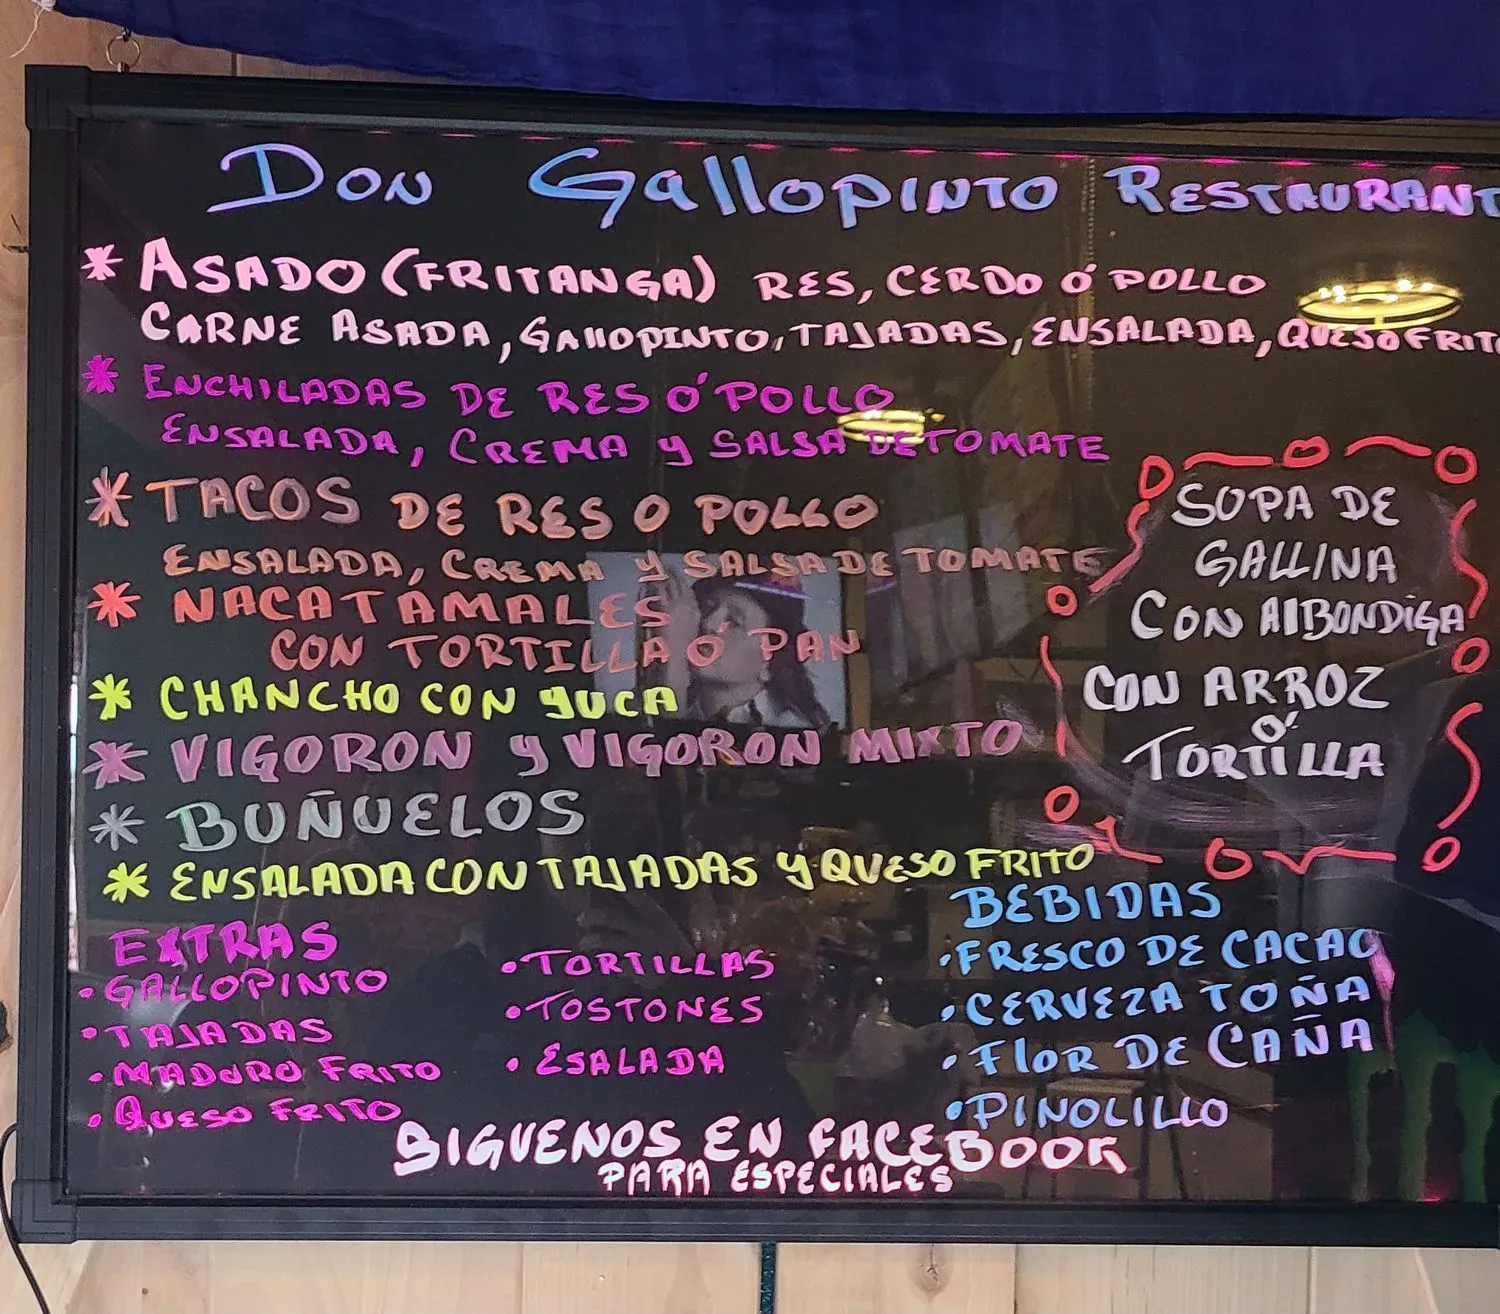 DON GALLOPINTO RESTAURANT
* ASADO (FRITANGA) RES, CERDO Ó POLLO
CARNE ASADA, GALLOPINTO, TAJADAS, ENSALADA, QUESO FRITO
* ENCHILADAS DE RES Ó POLLO
ENSALADA, CREMA Y SALSA DE TOMATE
* TACOS DE RES O POLLO
ENSALADA, CREMA Y SALSA DE TOMATE
* NACATAMALES
CON TORTILLA Ó PAN
* CHANCHO CON YUCA
* VIGORON Y VIGORON MIXTO
* BUÑUELOS
* ENSALADA CON TAJADAS Y QUESO FRITO
SOPA DE
GALLINA
CON AlBONDIGA
CON ARROZ
Ó
TORTILLA
EXTRAS
• GALLOPINTO
• TAJADAS
• MADURO FRITO
• QUESO FRITO
• TORTILLAS
• TOSTONES
• ESALADA
BEBIDAS
• FRESCO DE CACAO
• CERVEZA TOÑA
• FlOR DE CAÑA
• PINOLILLO
SIGUENOS EN FACEBOOK
PARA ESPECIALES